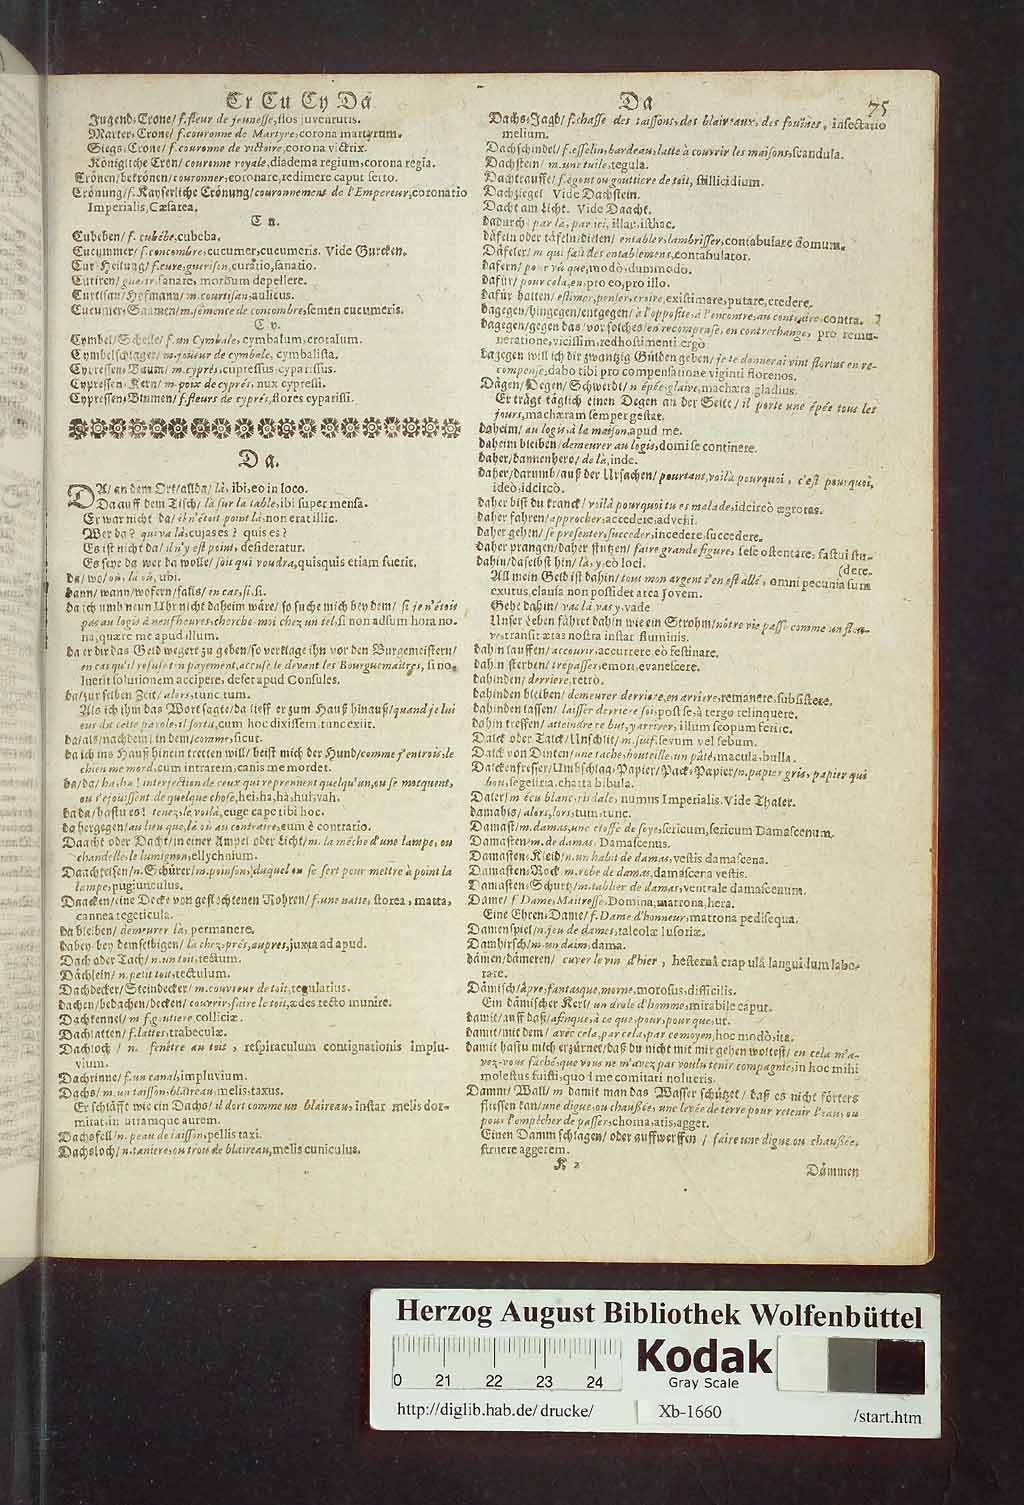 Cr Cu Cy Da
Jugend-Crone/ f. fleur de jeunesse, flos juventutis.
Marter-Crone/ f. couronne de Martyre, corona martyrum.
Siegs-Crone/ f. couronne de victoire, corona victrix.
Königliche Cron/ couronne royale, diadema regium, corona regia.
Crönen/ bekrönen/ couronner, coronare, redimere caput serto.
Crönung/ f. Kayserliche Crönung/ couronnement de l'Empereur, coronatio
Imperialis, Cæsarea.
C u.
Cubeben/ f. cubébe, cubeba.
Cucummer/ f. concombre, cucumer, cucumeris. Vide Gurcken.
Cur Heilung/ f. cure, guerison, curatio, sanatio.
Curiren/ guerir, sanare, morbum depellere.
Curtisan/ Hofmann/ m. courtisan, aulicus.
Cucumer-Saamen/ m. sémence de concombre, semen cucumeris.
C y.
Cymbel/ Schelle/ f. un Cymbale, cymbalum, crotalum.
Cymbelschlager/ m. joueur de cymbale, cymbalista.
Cypressen-Baum/ m. cyprés, cupressus, cyparissus.
Cypressen-Kern/ m. poix de cyprés, nux cypressi.
Cypressen-Blumen/ f. fleurs de cyprés, flores cyparissi.
D a.
DA/ an dem Ort/ allda/ là, ibi, eo in loco.
Da auff dem Tisch/ là sur la table, ibi super mensa.
Er war nicht da/ il n'étoit point là, non erat illic.
Wer da? qui va là, cujas es? quis es?
Es ist nicht da/ il n'y est point, desideratur.
Es seye da wer da wolle/ soit qui voudra, quisquis etiam fuerit.
da/ wo/ où, là où, ubi.
dann/ wann/ wofern/ falls/ in cas, si, si.
da ich umb neun Uhr nicht daheim wäre/ so suche mich bey dem/ si je n'étois
pas au logis à neuf heures, cherche-moi chez un tel, si non adsum hora no-
na, quære me apud illum.
da er dir das Geld wegert zu geben/ so verklage ihn vor den Burgemeistern/
en cas qu'il refuse ton payement, accuse le devant les Bourguemaîtres, si no-
luerit solutionem accipere, defer apud Consules.
da/ zur selben Zeit/ alors, tunc tum.
Als ich ihm das Wort sagte/ da lieff er zum Hauß hinauß/ quand je lui
eus dit cette parole, il sortit, cum hoc dixissem tunc exiit.
da/ als/ nachdem/ in dem/ comme, sicut.
da ich ins Hauß hinein tretten will/ beist mich der Hund/ comme j'entrois, le
chien me mord, cum intrarem, canis me mordet.
da/ da/ ha, ha! interjection de ceux qui reprennent quelqu'un, ou se mocquent,
ou s'ejouissent de quelque chose, hei, ha, ha, hui, vah.
da da/ hastu es! tenez, le voilà, euge cape tibi hoc.
da hergegen/ au lieu que, là où au contraire, eum è contrario.
Daacht oder Dacht/ in einer Ampel oder Licht/ m. la méche d'une lampe, ou
chandelle, le lumignon, ellychnium.
Daachteisen/ n. Schürer/ m. poinson, duquel on se sert pour mettre à point la
lampe, pugiunculus.
Daacken/ eine Decke von geflochtenen Rohren/ f. une natte, storea, matta,
cannea tegeticula.
da bleiben/ demeurer là, permanere.
dabey bey demselbigen/ là chez, prés, aupres, juxta ad apud.
Dach oder Tach/ n. un toit, tectum.
Dächlein/ n. petit toit, tectulum.
Dachdecker/ Steindecker/ m. couvreur de toit, tegularius.
dachen/ bedachen/ decken/ couvrir, faire le toit, ædes tecto munire.
Dachkennel/ m f. goutiere, colliciæ.
Dachlatten/ f. lattes, trabeculæ.
Dachloch/ n. fenêtre au toit, respiraculum contignationis implu-
vium.
Dachrinne/ f. un canal, impluvium.
Dachs/ m. un taisson, blaireau, melis, taxus.
Er schläfft wie ein Dachs/ il dort comme un blaireau, instar melis dor-
mitat, in utramque aurem.
Dachsfell/ n. peau de taisson, pellis taxi.
Dachsloch/ n. taniere, ou trou de blaireau, melis cuniculus.
Da
75
Dachs-Jagd/ f. chasse des taissons, des blaireaux, des fouïnes, insectatio
melium.
Dachschindel/ f. esselin, bardeau, latte à couvrir les maisons, scandula.
Dachstein/ m. une tuile, tegula.
Dachtrauffe/ f. égout ou gouttiere de toit, stillicidium.
Dachziegel Vide Dachstein.
Dacht am Licht. Vide Daacht.
dadurch/ par là, par ici, illac, isthac.
däfeln oder täfeln/ dielen/ entabler, lambrisser, contabulare domum.
Däfeler/ m qui fait des entablemens, contabulator.
dafern/ pour vû que, modò, dummodo.
dafür/ pour cela, en, pro eo, pro illo.
dafür halten/ estimer, penser, croire, existimare, putare, credere.
dagegen/ hingegen/ entgegen/ à l'opposite, à l'encontre, au contraire, contra.
dagegen/ gegen das/ vor solches/ en recompense, en contrechange, pro remu-
neratione, vicissim, redhostimenti ergò
dagegen will ich dir zwantzig Gülden geben/ je te donnerai vint florins en re-
compense, dabo tibi pro compensatione viginti florenos.
Dägen/ Degen/ Schwerdt/ n épée, glaive, machæra, gladius.
Er trägt täglich einen Degen an der Seite/ il porte une épée tous les
jours, machæram semper gestat.
daheim/ au logis, à la maison, apud me.
daheim bleiben/ demeurer au logis, domi se continere.
daher/ dannenhero/ de là, inde.
daher/ darumb/ auß der Ursachen/ pourtant, voilà pourquoi, c'est pourquoi,
ideò, idcircò.
daher bist du kranck/ voilà pourquoi tu es malade, idcircò ægrotas.
daher fahren/ approcher, accedere, advehi.
daher gehen/ se presenter, succeder, incedere, succedere.
daher prangen/ daher stutzen/ faire grande figure, sese ostentare, fastui stu-
dahin/ daselbst hin/ là, y, eò loci. (dere.
All mein Geld ist dahin/ tout mon argent s'en est allé, omni pecunia sum
exutus, clausa non possidet arca Jovem.
Gehe dahin/ va là vas y, vade
Unser Leben fähret dahin wie ein Strohm/ nôtre vie passe comme un fleu-
ve, transit ætas nostra instar fluminis.
dahin lauffen/ accourir, accurrere, eò festinare.
dahin sterben/ trépasser, emori, evanescere.
dahinden/ derriere, retro.
dahinden bleiben/ demeurer derriere, en arriere, remanere, subsistere.
dahinden lassen/ laisser derriere soi, post se, à tergo relinquere.
dahin treffen/ atteindre ce but, y arriver, illum scopum ferire.
Dalck oder Talck/ Unschlit/ m. suif, sevum vel sebum.
Dalck von Dinten/ une tache, bouteille, un pâté, macula, bulla.
Dalckenfresser/ Umbschlag-Papier/ Pack-Papier/ n. papier gris, papier qui
bou, segestria, charta bibula.
Daler/ m écu blanc, risdale, numus Imperialis. Vide Thaler.
damahls/ alors, lors, tum, tunc.
Damast/ m. damas, une étoffe de soye, sericum, sericum Damascenum.
Damasten/ m. de damas, Damascenus.
Damasten-Kleid/ n. un habit de damas, vestis damascena.
Damasten-Rock m. robe de damas, damascena vestis.
Damasten-Schurtz/ m. tablier de damas, ventrale damascenum.
Dame/ f Dame, Maitresse, Domina, matrona, hera.
Eine Ehren-Dame/ f. Dame d'honneur, matrona pedisequa.
Damenspiel/ n. jeu de dames, taleolæ lusoriæ.
Damhirsch/ m. un daim, dama.
dämen/ dämeren/ cuver le vin d'hier, hesternâ crapulâ languidum labo-
rare.
Dämisch/ âpre, fantasque, morne, morosus, difficilis.
Ein dämischer Kerl/ un drole d'homme, mirabile caput.
damit/ auff daß/ afinque, à ce que, pour, pour que, ut.
damit/ mit dem/ avec cela, par cela, par ce moyen, hoc modò, ita.
damit hastu mich erzürnet/ daß du nicht mit mir gehen woltest/ en cela m'a-
vez-vous fâché, que vous ne m'avez pas voulu tenir compagnie, in hoc mihi
molestus fuisti, quod me comitari nolueris.
Damm/ Wall/ m damit man das Wasser schützet/ daß es nicht förters
fliessen kan/ une digue, ou chaußée, une levée de terre pour retenir l'eau, ou
pour l'empêcher de passer, choma, atis, agger.
Einen Damm schlagen/ oder auffwerffen/ faire une digue, ou chaußée,
struere aggerem.
K 2
Dämmen
Herzog August Bibliothek Wolfenbüttel
Kodak
Gray Scale
0 21 22 23 24
http://diglib.hab.de/ drucke/ Xb-1660 /start.htm